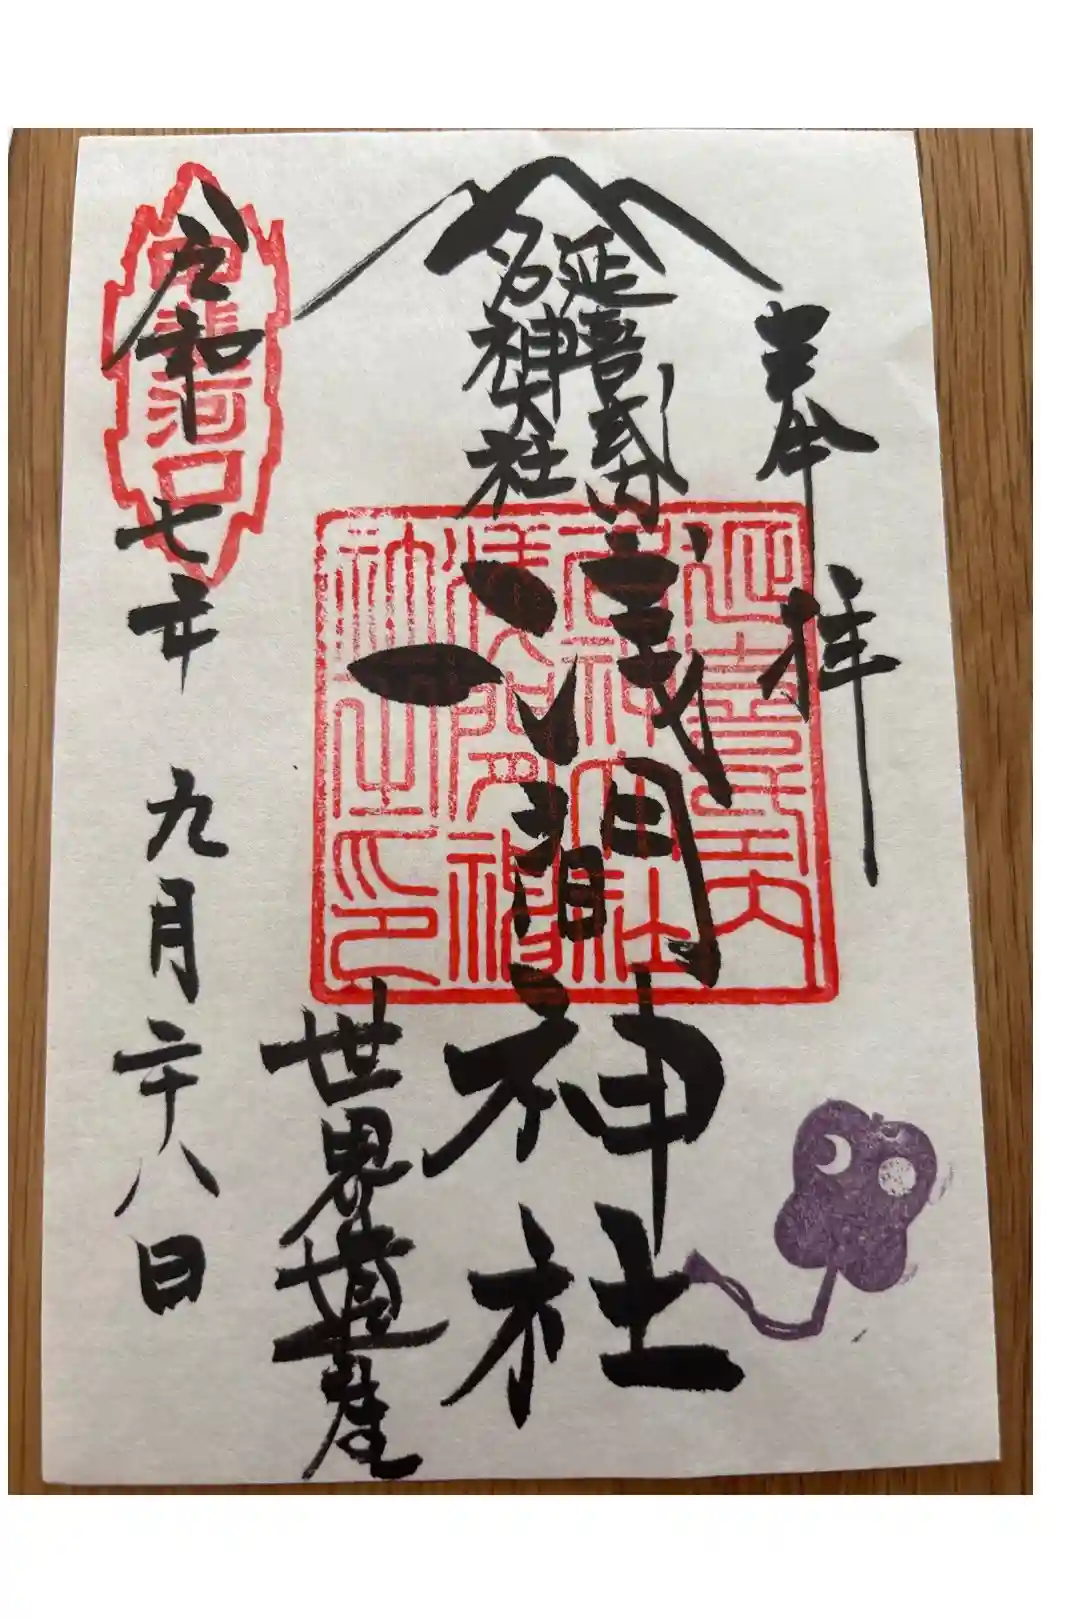 奉拝
延喜式内
名神大社
浅間神社
世界遺産
令和七年九月二十八日
甲斐河口
延喜式内
名神大社